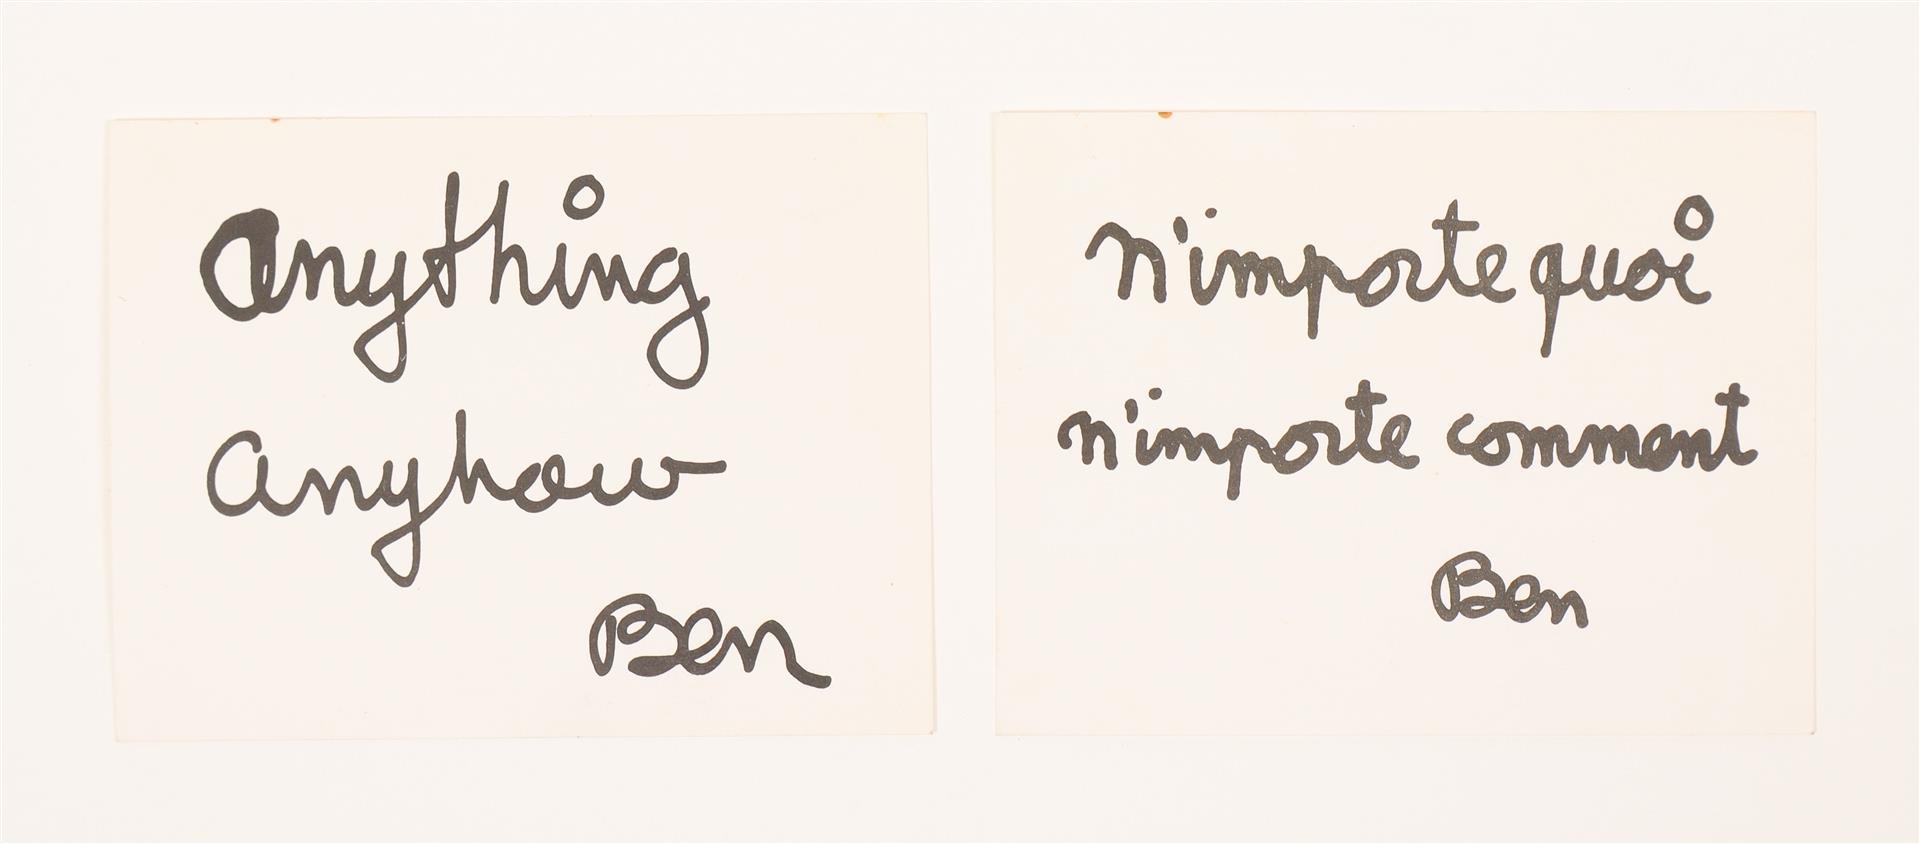 anything
anyhow
Ben
n'importe quoi
n'importe comment
Ben